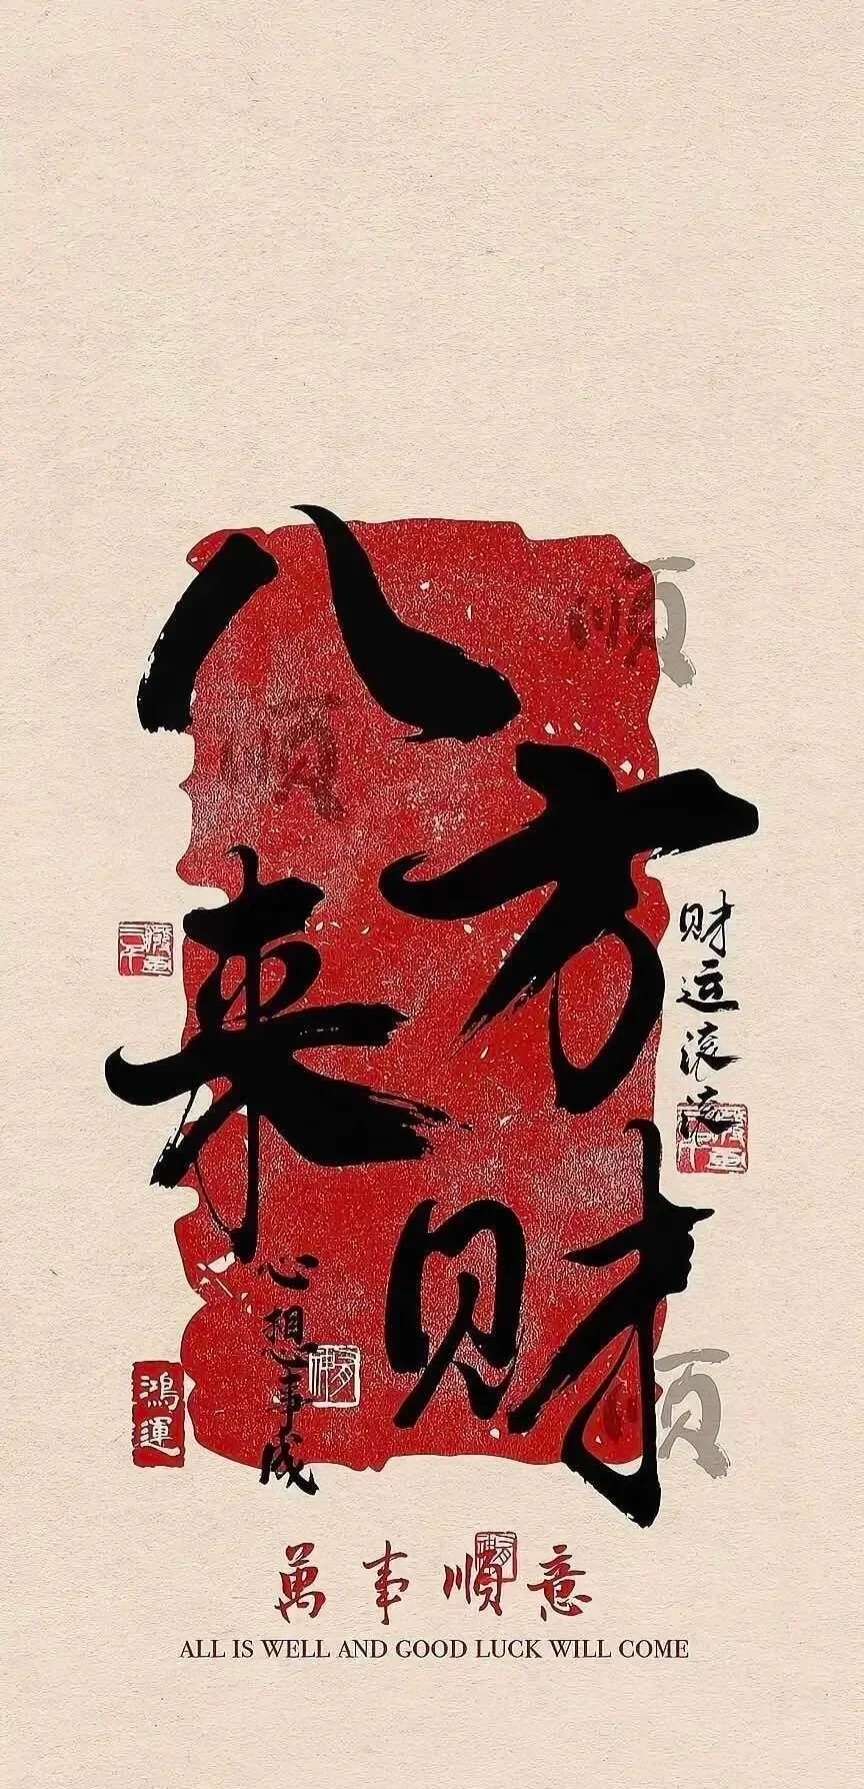 八方来财
顺
顺
财运滚滚
心想事成
鴻運
顺
萬事順意
ALL IS WELL AND GOOD LUCK WILL COME